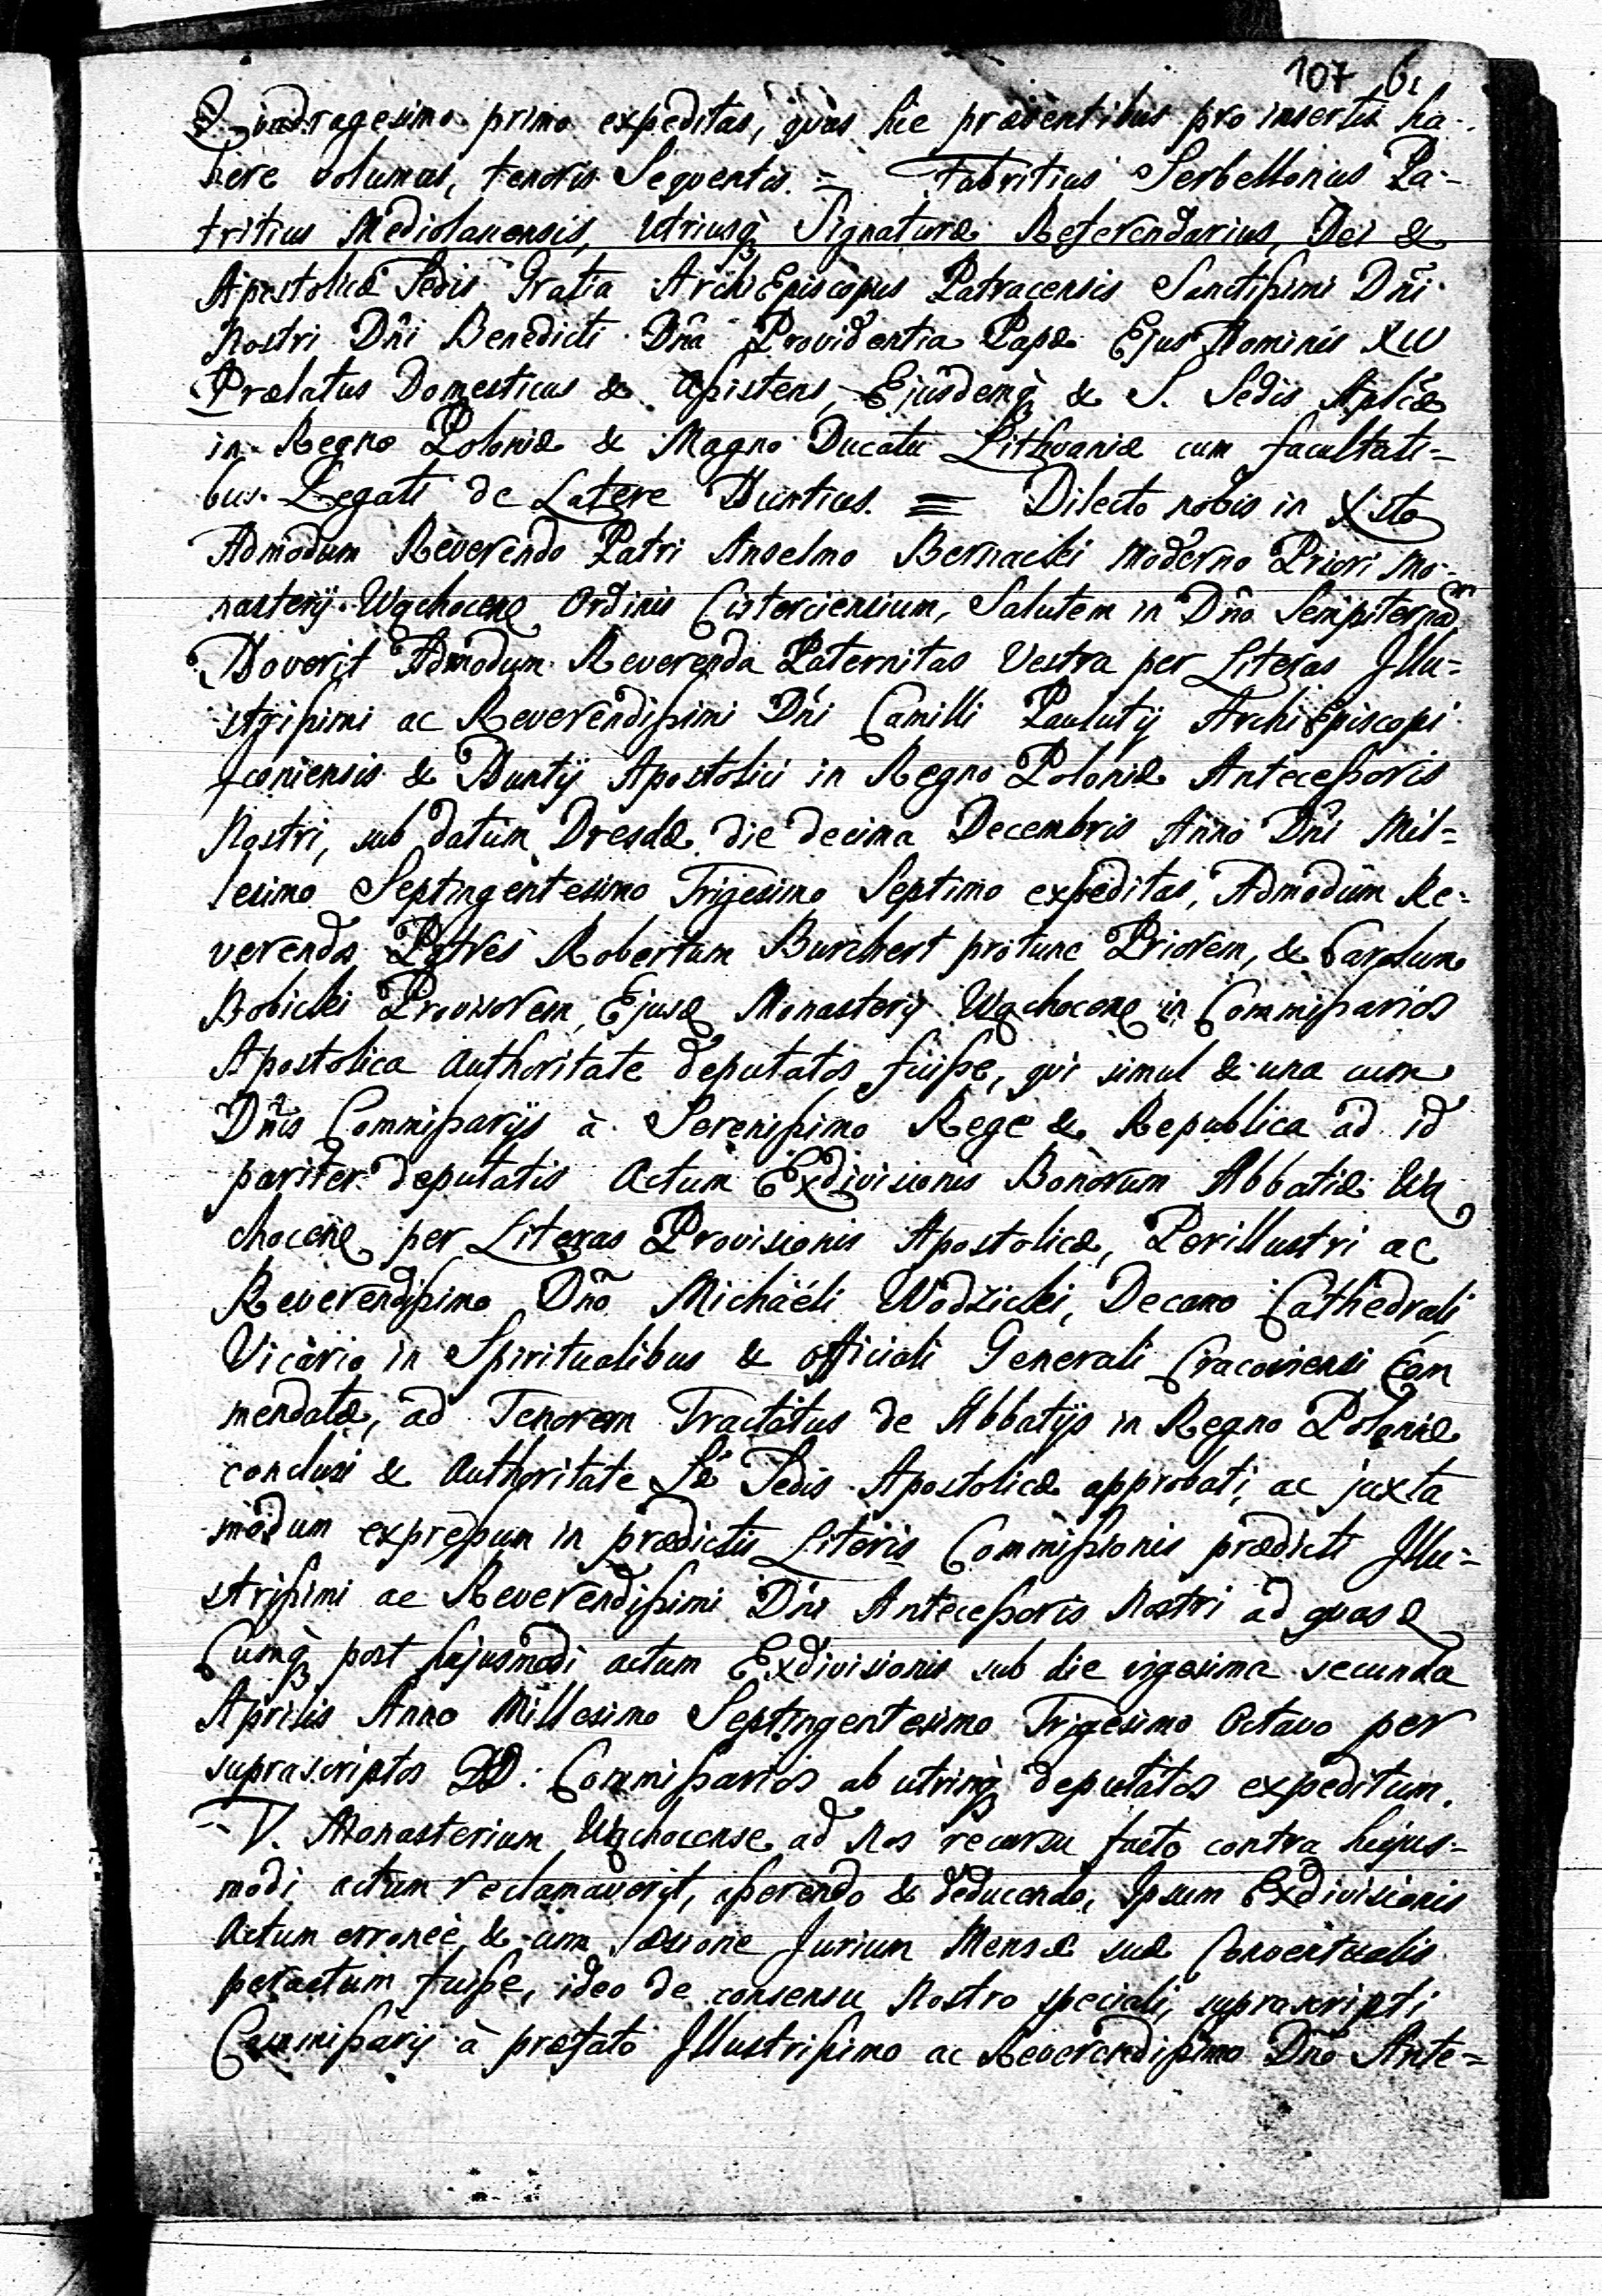 107 61
Quadragesimo primo expeditas, quas hic præsentibus pro insertis ha-
bere volumus, tenoris Sequentis. = Fabritius Serbellonius Pa-
tritius Mediolanensis, Utriusq̀ Signaturæ Referendarius, Dei &
Apostolicæ Sedis Gratia ArchiEpiscopus Patracensis Sanctissimi Dñi
Nostri Dñi Benedicti Dña Providentia Papæ Ejus Nominis XIV
Prælatus Domesticus & Assistens, Ejusdemq̀ & S. Sedis Aplicæ
in Regno Poloniæ & Magno Ducatu Lithvaniæ cum facultati-
bus Legati de Latere Nuntius. = Dilecto nobis in Xsto
Admodum Reverendo Patri Anselmo Bernacki Moderno Priori Mo-
nasterij Wąchocen Ordinis Cisterciensium, Salutem in Dño Sempiternam
Noverit Admodum Reverenda Paternitas Vestra per Literas Illu-
strissimi ac Reverendissimi Dñi Camilli Paulutij ArchiEpiscopi
Iconiensis & Nuntij Apostolici in Regno Poloniæ Antecessoris
Nostri, sub datum Dresdæ die decima Decembris Anno Dñi Mil-
lesimo Septingentesimo Trigesimo Septimo expeditas, Admodum Re-
verendos Patres Robertum Burchert protunc Priorem, & Carolum
Bobicki Provisorem, Ejusd Monasterij Wąchocen in Commissarios
Apostolica Authoritate deputatos fuisse, qvi simul & una cum
Dñis Commissarijs à Serenissimo Rege & Republica ad id
pariter deputatis Actum Exdivisionis Bonorum Abbatiæ Wą
chocen per Literas Provisionis Apostolicæ, Perillustri ac
Reverendissimo Dño Michaéli Wodzicki, Decano Cathedrali
Vicario in Spiritualibus & Officiali Generali Cracoviensi Com
mendatæ, ad Tenorem Tractatus de Abbatijs in Regno Poloniæ
conclusi & Authoritate Sæ Sedis Apostolicæ approbati, ac juxta
modum expressum in prædictis Literis Commissionis prædicti Illu-
strissimi ac Reverendissimi Dñi Antecessoris Nostri ad quas &
Cumq̀ post hujusmodi actum Exdivisionis sub die vigesima secunda
Aprilis Anno Millesimo Septingentesimo Trigesimo Octavo per
suprascriptos DD: Commissarios ab utrinq̀ deputatos expeditum.
V. Monasterium Wąchocense ad Nos recursu facto contra hujus-
modi actum reclamaverit, asserendo & deducendo, Ipsum Exdivisionis
Actum erroneè & cum læsione Jurium Mensæ suæ Conventualis
peractum fuisse, ideo de consensu Nostro speciali, suprascripti
Commissarij à præfato Illustrissimo ac Reverendissimo Dño Ante-